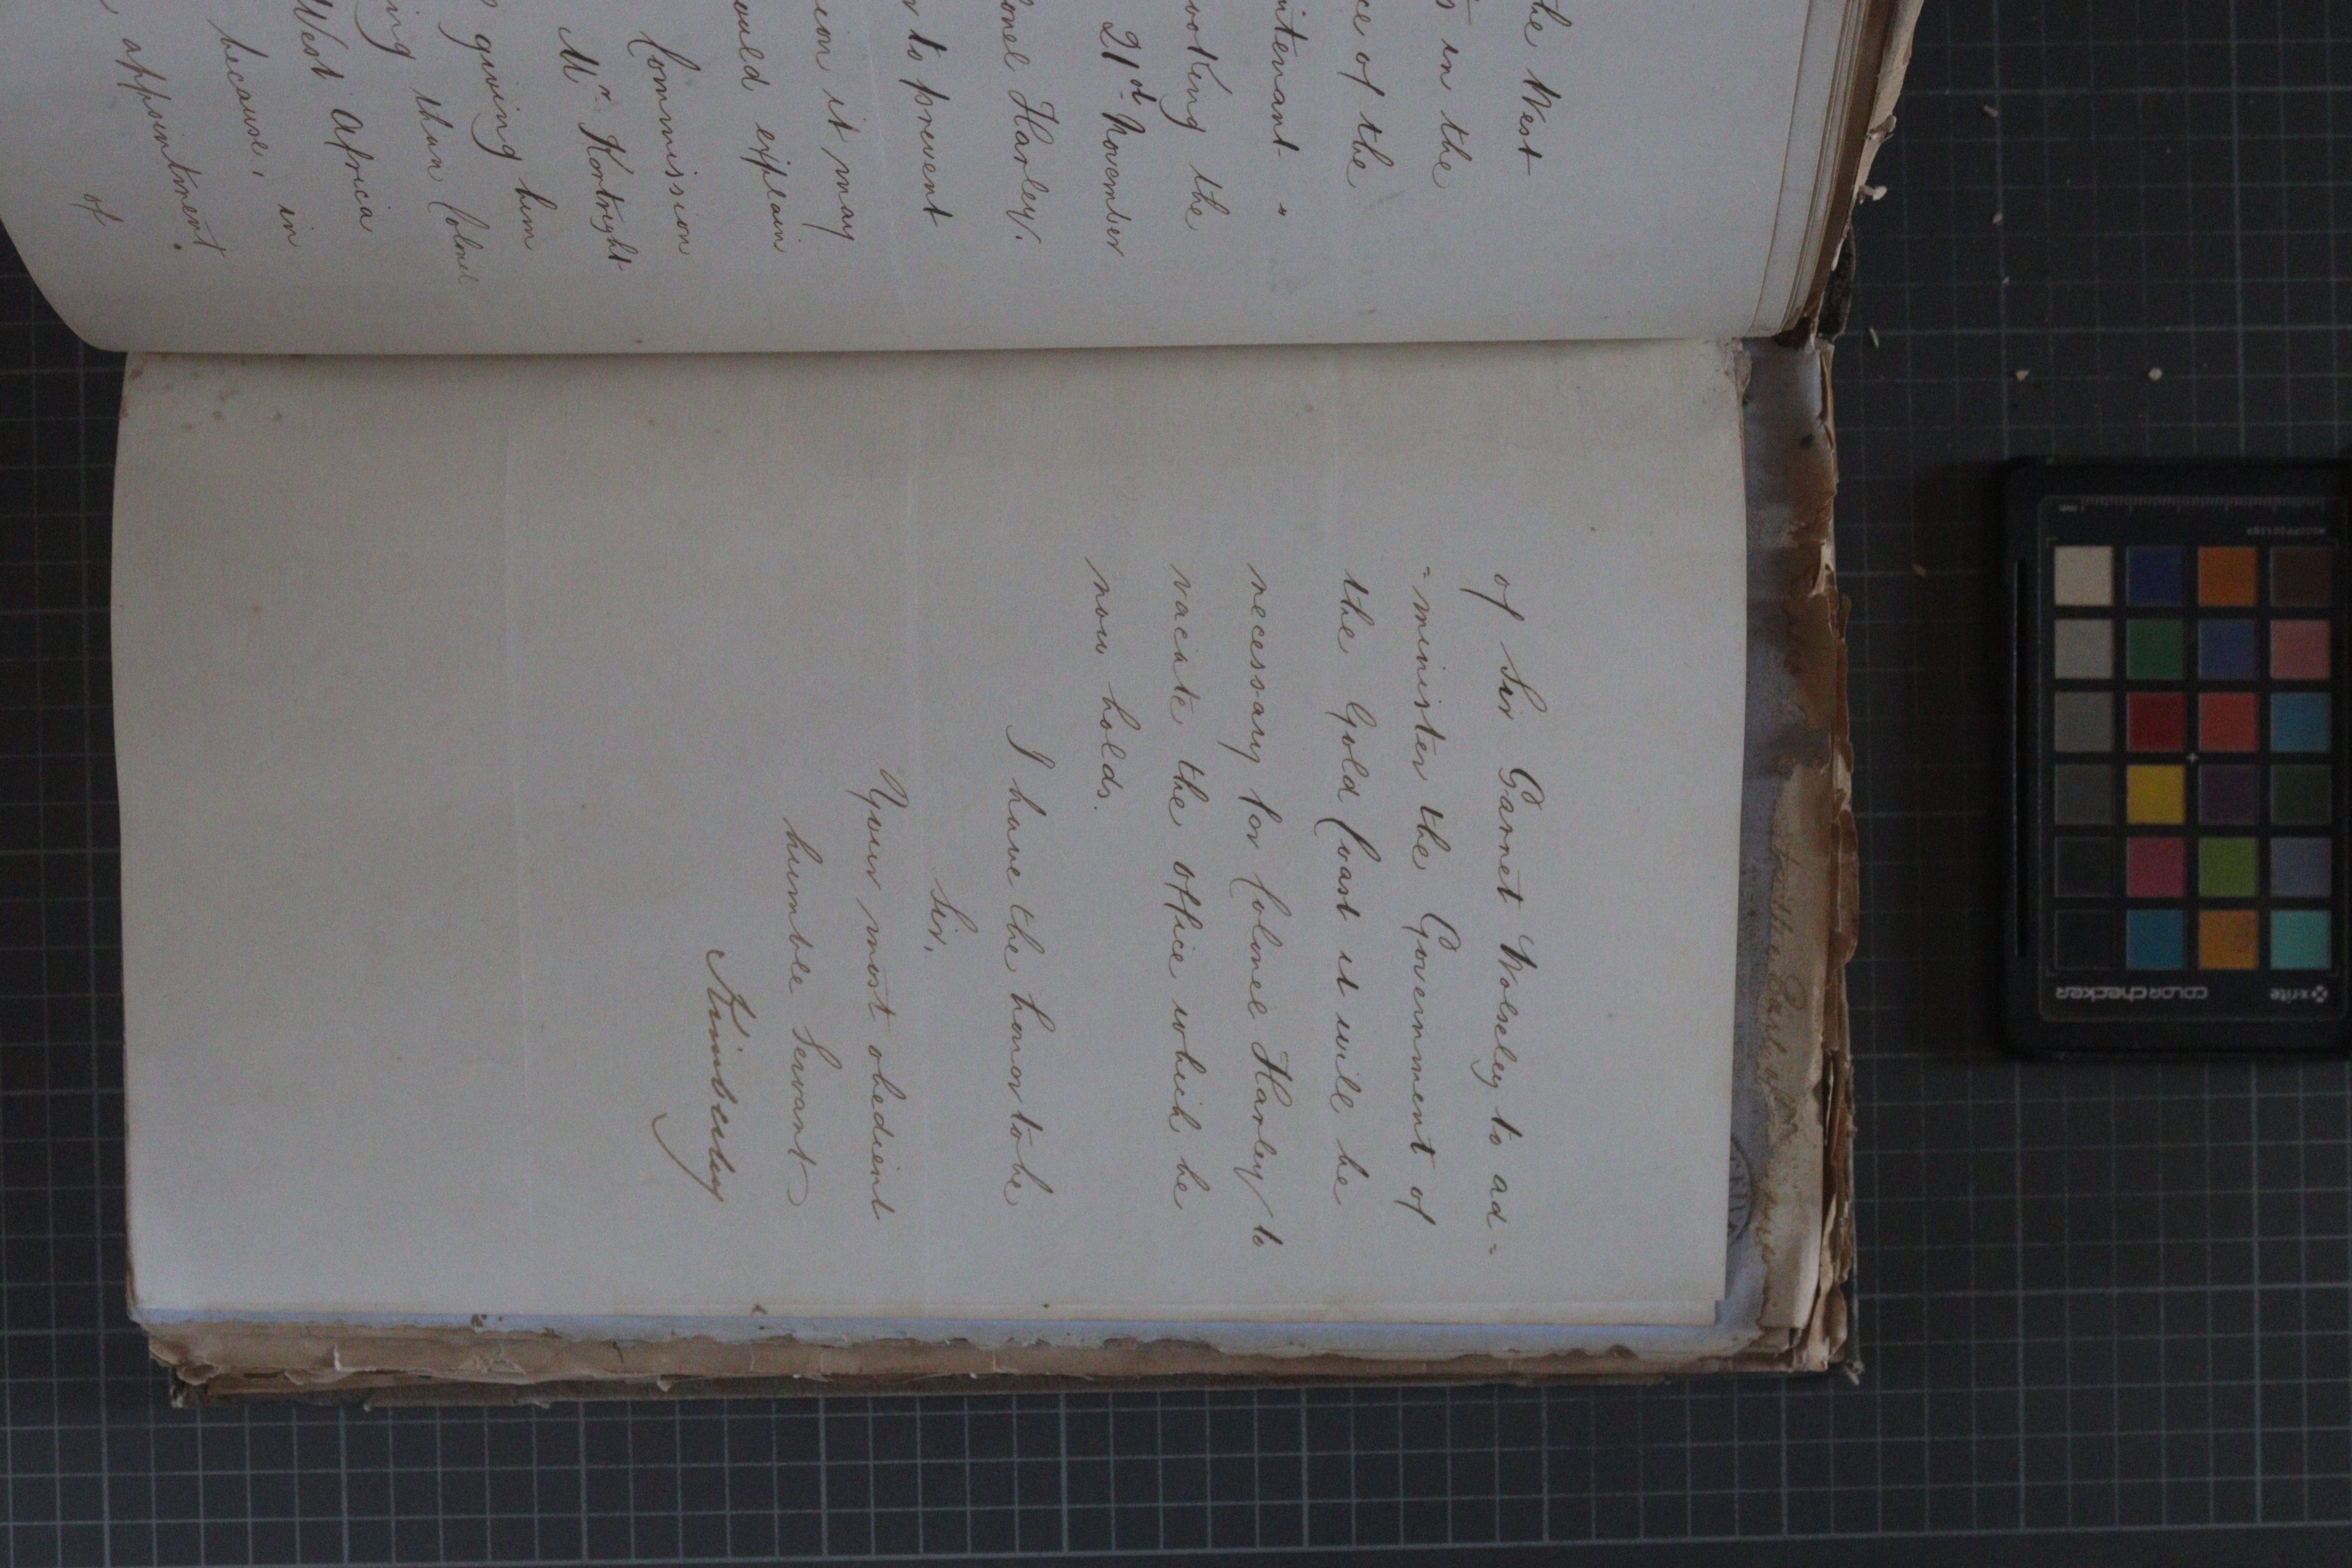 the West
s in the
ce of the
utenant "
ooking the
21st November
onel Harley.
r to prevent
ion it may
ould explain
Commission
Mr. Kortright
giving him
ing than Colonel
West Africa
because, in
appointment
of
of Sir Garnet Wolseley to ad=
=minister the Government of
the Gold Coast it will be
necessary for Colonel Harley to
vacate the office which he
now holds.
I have the honor to be
Sir,
Your most obedient
humble Servant
Kimberley
x-rite
colorchecker